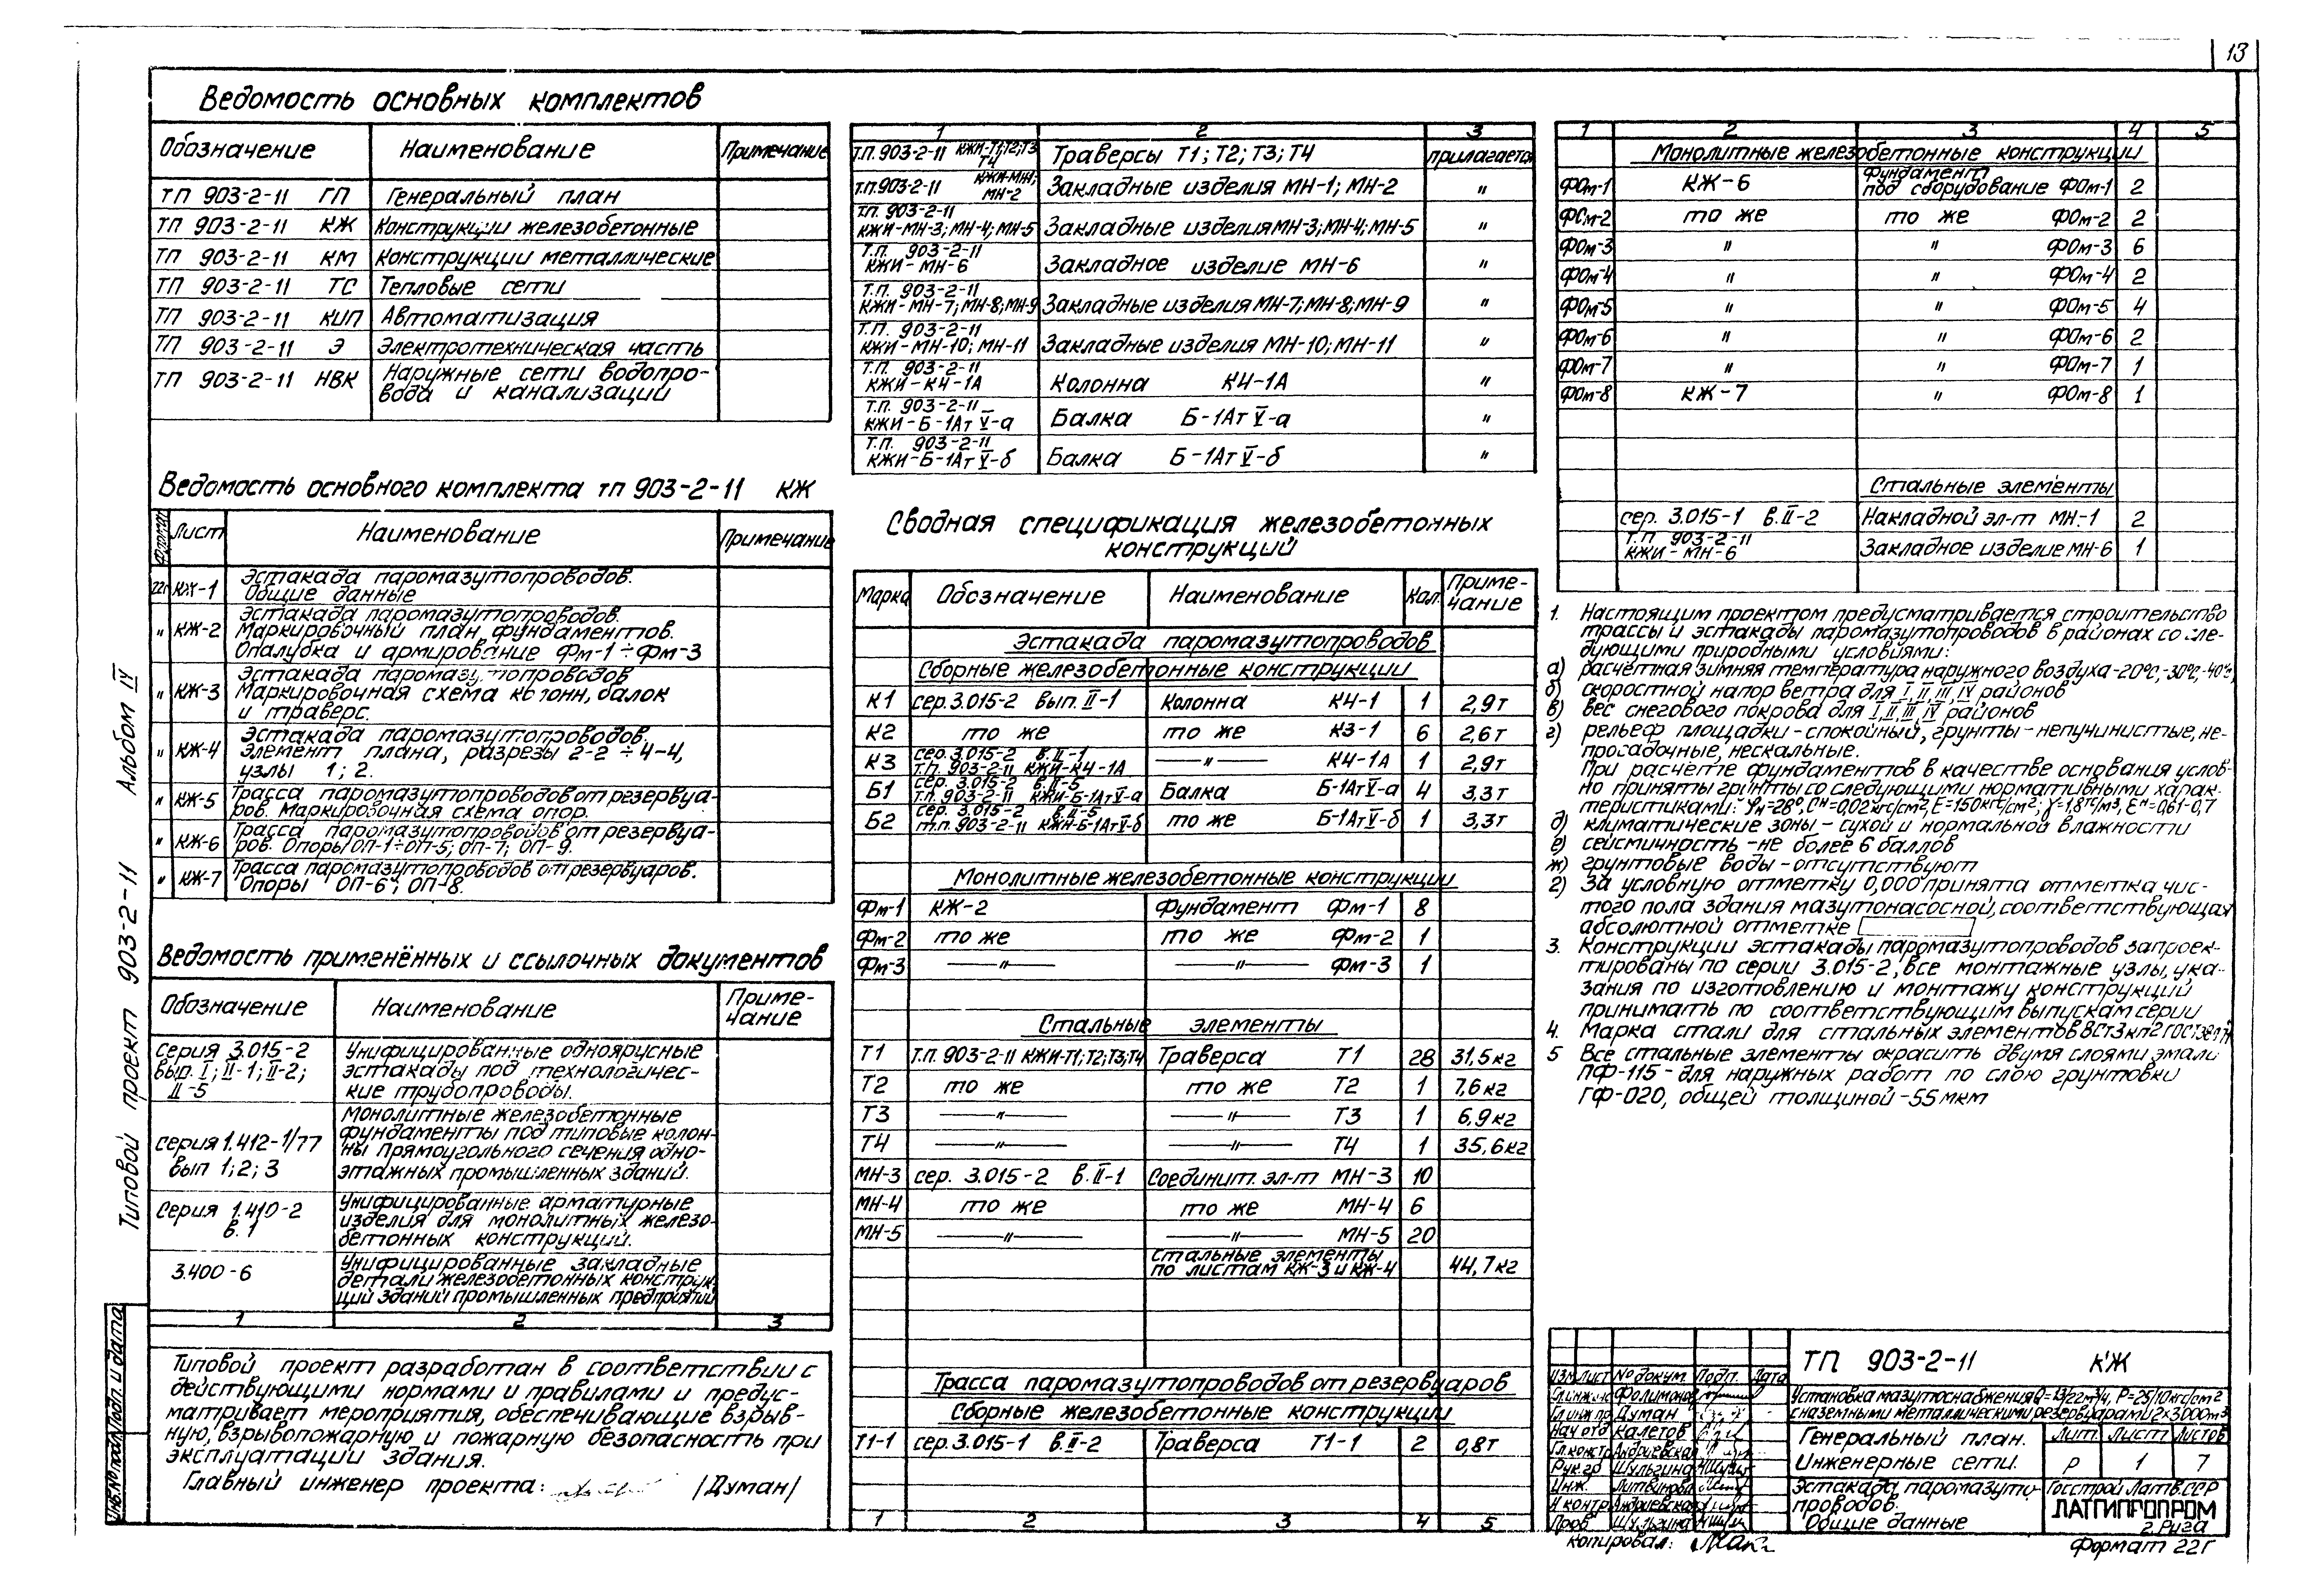 13
Ведомость основных комплектов
Обозначение Наименование Примечание
ТП 903-2-11 ГП Генеральный план
ТП 903-2-11 КЖ Конструкции железобетонные
ТП 903-2-11 КМ Конструкции металлические
ТП 903-2-11 ТС Тепловые сети
ТП 903-2-11 КИП Автоматизация
ТП 903-2-11 Э Электротехническая часть
ТП 903-2-11 НВК Наружные сети водопро-
вода и канализации
Ведомость основного комплекта тп 903-2-11 КЖ
Формат Лист Наименование Примечание
22г КЖ-1 Эстакада паромазутопроводов.
Общие данные
" КЖ-2 Эстакада паромазутопроводов.
Маркировочный план, фундаментов.
Опалубка и армирование Фм-1÷Фм-3
" КЖ-3 Эстакада паромазутопроводов
Маркировочная схема колонн, балок
и траверс.
" КЖ-4 Эстакада паромазутопроводов.
Элемент плана, разрезы 2-2÷4-4,
узлы 1; 2.
" КЖ-5 Трасса паромазутопроводов от резервуа-
ров. Маркировочная схема опор.
" КЖ-6 Трасса паромазутопроводов от резервуа-
ров. Опоры ОП-1÷ОП-5; ОП-7; ОП-9.
" КЖ-7 Трасса паромазутопроводов от резервуаров.
Опоры ОП-6; ОП-8.
Ведомость применённых и ссылочных документов
Обозначение Наименование Приме-
чание
серия 3.015-2 Унифицированные одноярусные
вып. I; II-1; II-2; эстакады под технологичес-
II-5 кие трубопроводы.
Монолитные железобетонные
фундаменты под типовые колон-
серия 1.412-1/77 ны прямоугольного сечения одно-
вып 1; 2; 3 этажных промышленных зданий.
Серия 1.410-2 Унифицированные арматурные
в. 1 изделия для монолитных железо-
бетонных конструкций.
3.400-6 Унифицированные закладные
детали железобетонных конструк-
ций зданий промышленных предприятий
1 2 3
Типовой проект разработан в соответствии с
действующими нормами и правилами и предус-
матривает мероприятия, обеспечивающие взрыв-
ную, взрывопожарную и пожарную безопасность при
эксплуатации здания.
Главный инженер проекта: /Думан/
Типовой проект 903-2-11 Альбом IV
Инв.№ подл. Подп. и дата
1 2 3
Т.П. 903-2-11 КЖИ-Т1;Т2;Т3 Т4 Траверсы Т1; Т2; Т3; Т4 прилагается
Т.П. 903-2-11 КЖИ-МН1; МН-2 Закладные изделия МН-1; МН-2 "
Т.П. 903-2-11
КЖИ-МН-3; МН-4; МН-5 Закладные изделия МН-3; МН-4; МН-5 "
Т.П. 903-2-11
КЖИ-МН-6 Закладное изделие МН-6 "
Т.П. 903-2-11
КЖИ-МН-7; МН-8; МН-9 Закладные изделия МН-7; МН-8; МН-9 "
Т.П. 903-2-11
КЖИ-МН-10; МН-11 Закладные изделия МН-10; МН-11 "
Т.П. 903-2-11
КЖИ-К4-1А Колонна К4-1А "
Т.П. 903-2-11
КЖИ-Б-1Ат V-а Балка Б-1Ат V-а "
Т.П. 903-2-11
КЖИ-Б-1Ат V-б Балка Б-1Ат V-б "
Сводная спецификация железобетонных
конструкций
Марка Обозначение Наименование Кол. Приме-
чание
Эстакада паромазутопроводов
Сборные железобетонные конструкции
К1 сер. 3.015-2 вып. II-1 Колонна К4-1 1 2,9т
К2 то же то же К3-1 6 2,6т
К3 сер. 3.015-2 в. II-1
Т.П. 903-2-11 КЖИ-К4-1А —"— К4-1А 1 2,9т
Б1 сер. 3.015-2 в. II-5
Т.П. 903-2-11 КЖИ-Б-1Ат V-а Балка Б-1Ат V-а 4 3,3т
Б2 сер. 3.015-2 в. II-5
т.п. 903-2-11 КЖИ-Б-1Ат V-б то же Б-1Ат V-б 1 3,3т
Монолитные железобетонные конструкции
Фм-1 КЖ-2 Фундамент Фм-1 8
Фм-2 то же то же Фм-2 1
Фм-3 —"— —"— Фм-3 1
Стальные элементы
Т1 Т.П. 903-2-11 КЖИ-Т1; Т2; Т3; Т4 Траверса Т1 28 31,5кг
Т2 то же то же Т2 1 7,6кг
Т3 —"— —"— Т3 1 6,9кг
Т4 —"— —"— Т4 1 35,6кг
МН-3 сер. 3.015-2 в. II-1 Соединит. эл-т МН-3 10
МН-4 то же то же МН-4 6
МН-5 —"— —"— МН-5 20
Стальные элементы
по листам КЖ-3 и КЖ-4 44,7кг
Трасса паромазутопроводов от резервуаров
Сборные железобетонные конструкции
Т1-1 сер. 3.015-1 в. II-2 Траверса Т1-1 2 0,8т
1 2 3 4 5
1 2 3 4 5
Монолитные железобетонные конструкции
ФОм-1 КЖ-6 Фундамент
под оборудование ФОм-1 2
ФОм-2 то же то же ФОм-2 2
ФОм-3 " " ФОм-3 6
ФОм-4 " " ФОм-4 2
ФОм-5 " " ФОм-5 4
ФОм-6 " " ФОм-6 2
ФОм-7 " " ФОм-7 1
ФОм-8 КЖ-7 " ФОм-8 1
Стальные элементы
сер. 3.015-1 в. II-2 Накладной эл-т МН-1 2
Т.П 903-2-11
КЖИ-МН-6 Закладное изделие МН-6 1
1. Настоящим проектом предусматривается строительство
трассы и эстакады паромазутопроводов в районах со сле-
дующими природными условиями:
а) расчётная зимняя температура наружного воздуха -20°С, -30°С, -40°С,
б) скоростной напор ветра для I, II, III, IV районов
в) вес снегового покрова для I, II, III, IV районов
г) рельеф площадки - спокойный, грунты - непучинистые, не-
просадочные, нескальные.
При расчёте фундаментов в качестве основания услов-
но приняты грунты со следующими нормативными харак-
теристиками: φн=28°, Сн=0,02кгс/см², Е=150кгс/см²; γ=1,8т/м³, Ен=0,61-0,7
д) климатические зоны - сухой и нормальной влажности
е) сейсмичность - не более 6 баллов
ж) грунтовые воды - отсутствуют
2) За условную отметку 0,000 принята отметка чис-
того пола здания мазутонасосной, соответствующая
абсолютной отметке
3. Конструкции эстакады паромазутопроводов запроек-
тированы по серии 3.015-2, все монтажные узлы, ука-
зания по изготовлению и монтажу конструкций
принимать по соответствующим выпускам серии
4. Марка стали для стальных элементов ВСт3кп2
5 Все стальные элементы окрасить двумя слоями эмали
ПФ-115 - для наружных работ по слою грунтовки
ГФ-020, общей толщиной -55 мкм
ТП 903-2-11 КЖ
Изм Лист № докум. Подп. Дата
Установка мазутоснабжения Q=13/22м³/ч, Р=25/10кгс/см²
с наземными металлическими резервуарами 2×3000м³
Гл.инж.ин Филимонов
Гл.инж.пр Думан
Нач отд Калетов
Гл.констр Андриевская
Рук.гр Шульгина
Инж. Литвинова
Н контр Андриевская
Пров Шульгина
Генеральный план.
Инженерные сети.
Лит Лист Листов
Р 1 7
Эстакада паромазуто-
проводов.
Общие данные
Госстрой Латв.ССР
ЛАТГИПРОПРОМ
г. Рига
Копировал:
Формат 22Г